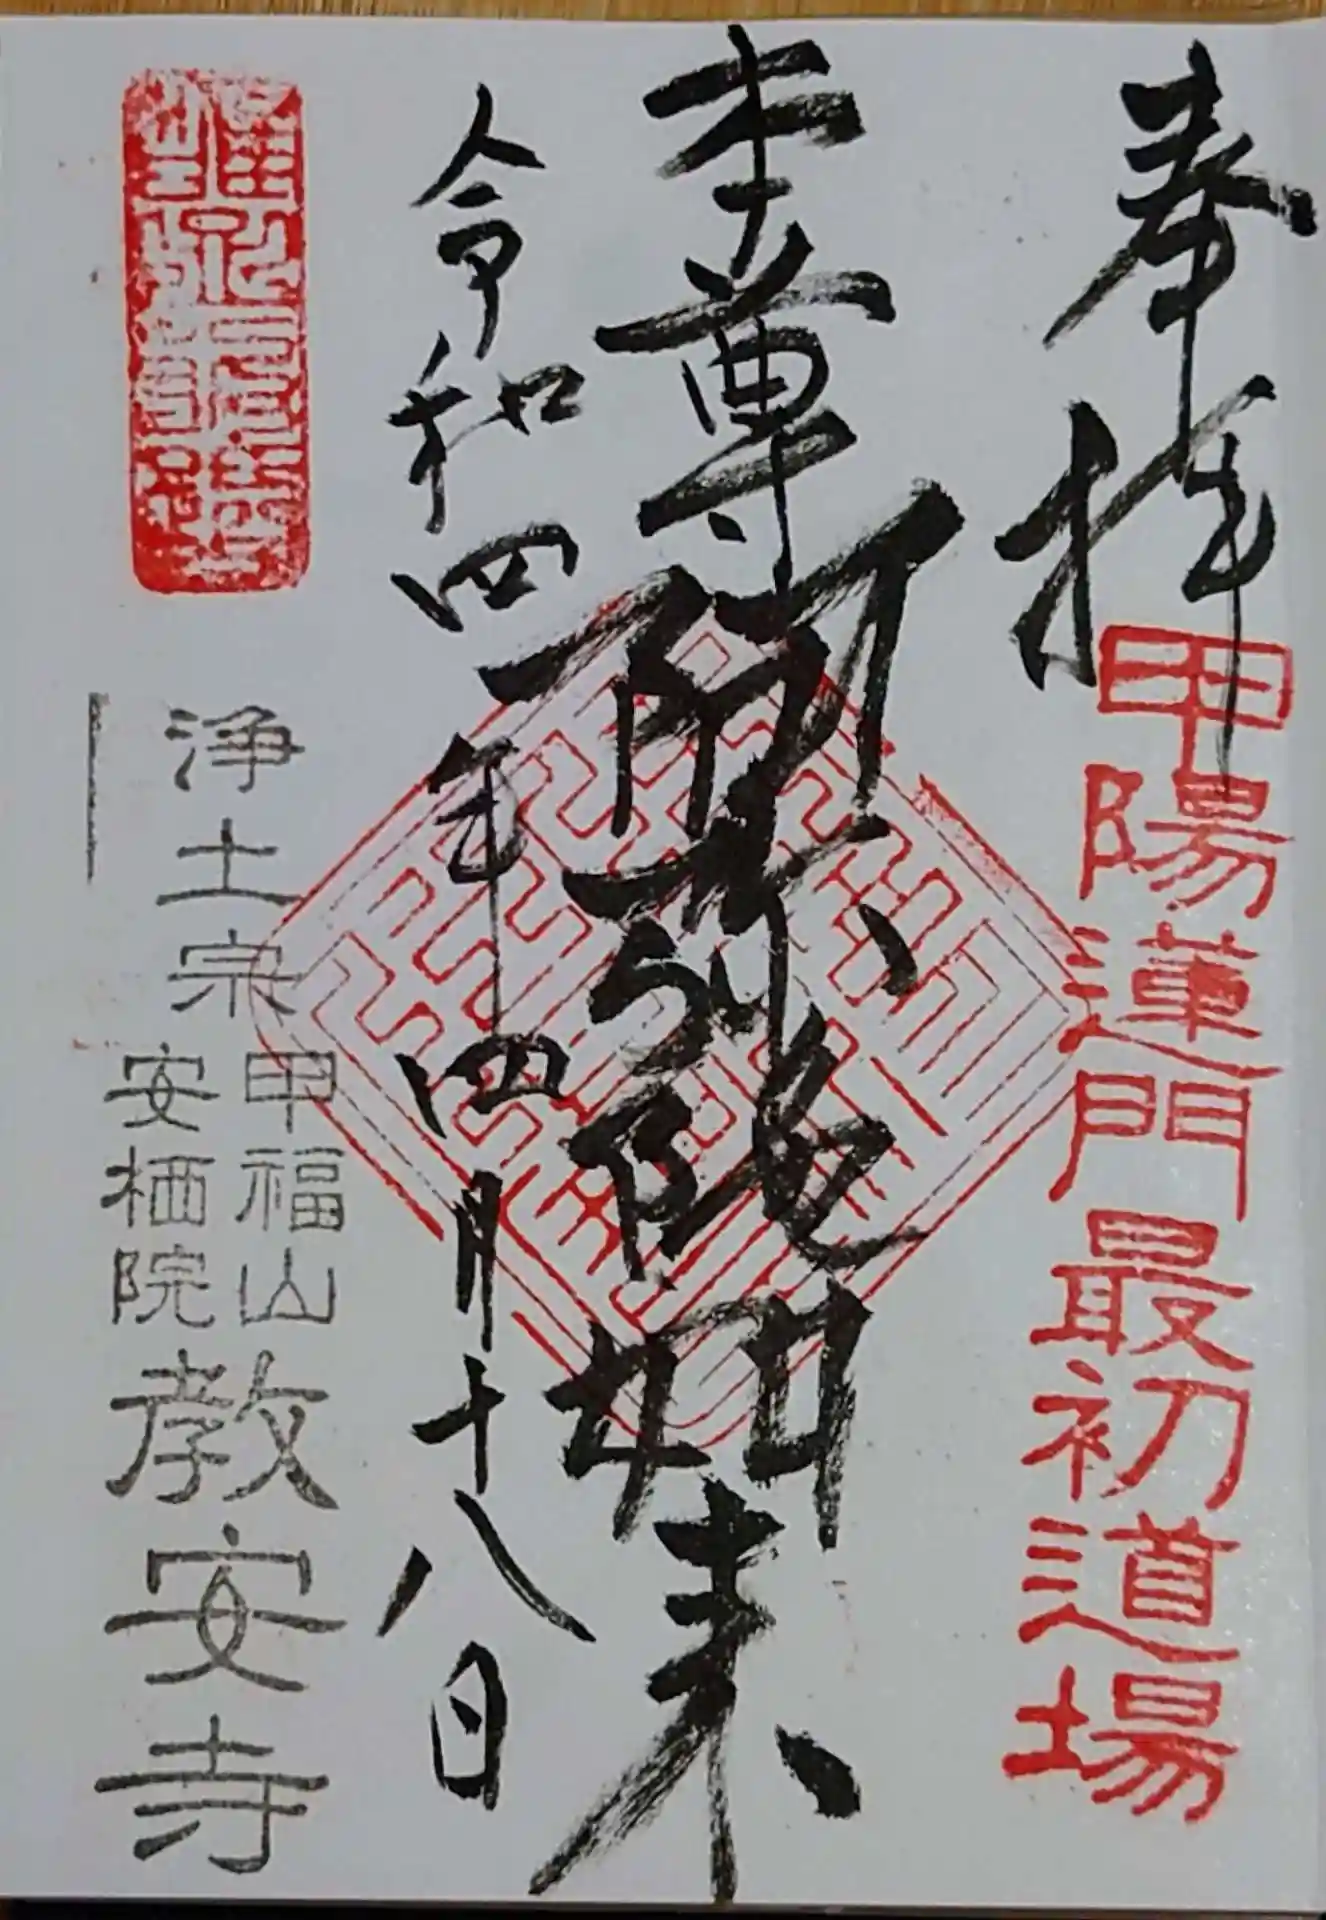 奉拝
甲陽蓮門最初道場
本尊
阿弥陀如来
令和四年四月十八日
浄土宗
甲福山
安栖院
教安寺